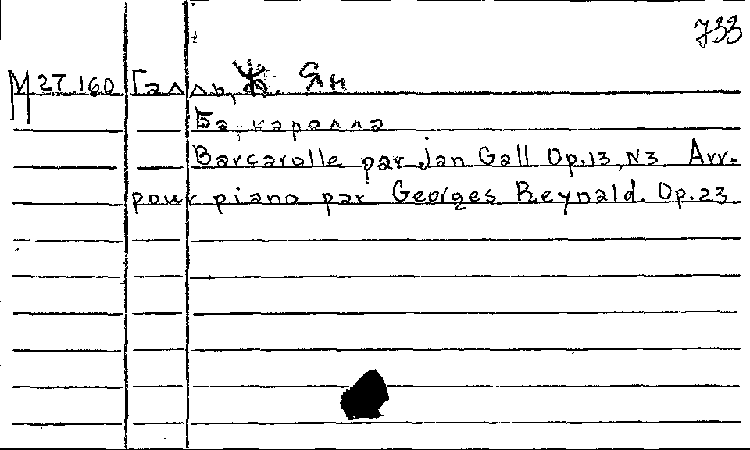 733
М 27.160 Галль, Ж. Ян
Ба,каралла
Barcarolle par Jan Gall Op.13, N3 Arr.
pour piano par Georges Reynald. Op.23